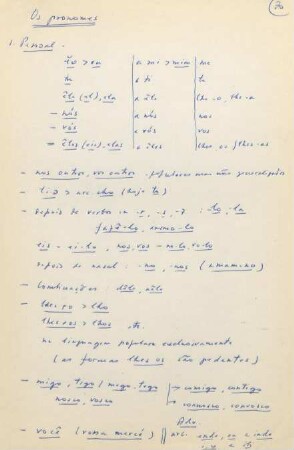 Os pronomes
1. Pessoal.
eo > eu | a mi > mim | me
tu | a ti | te
êle (el), ela | a êle | lhe-o, lhe-a
– nós | a nós | nos
– vós | a vós | vos
– êles (eis), elas | a êles | lhes-os) lhes-as
– nos outros, vos outros - populares mas não
– (hoje
– Depois de verbos em -r, -s, -z : -lo, -la
fazê-lo,
eis - ei-lo, nos, vos - no-lo, vo-lo
depois de nasal : -no, -nos (amam-no)
– Combinações: dêle, nêle
– lhe + o > lho
lhe + os > lhos, etc.
na linguagem popular exclusivamente
(as formas lhes os são pedantes)
– migo, tigo / mego, tego
nosco, vosco
comigo, contigo
connosco, convosco
– você (vossa mercê)
Adv.